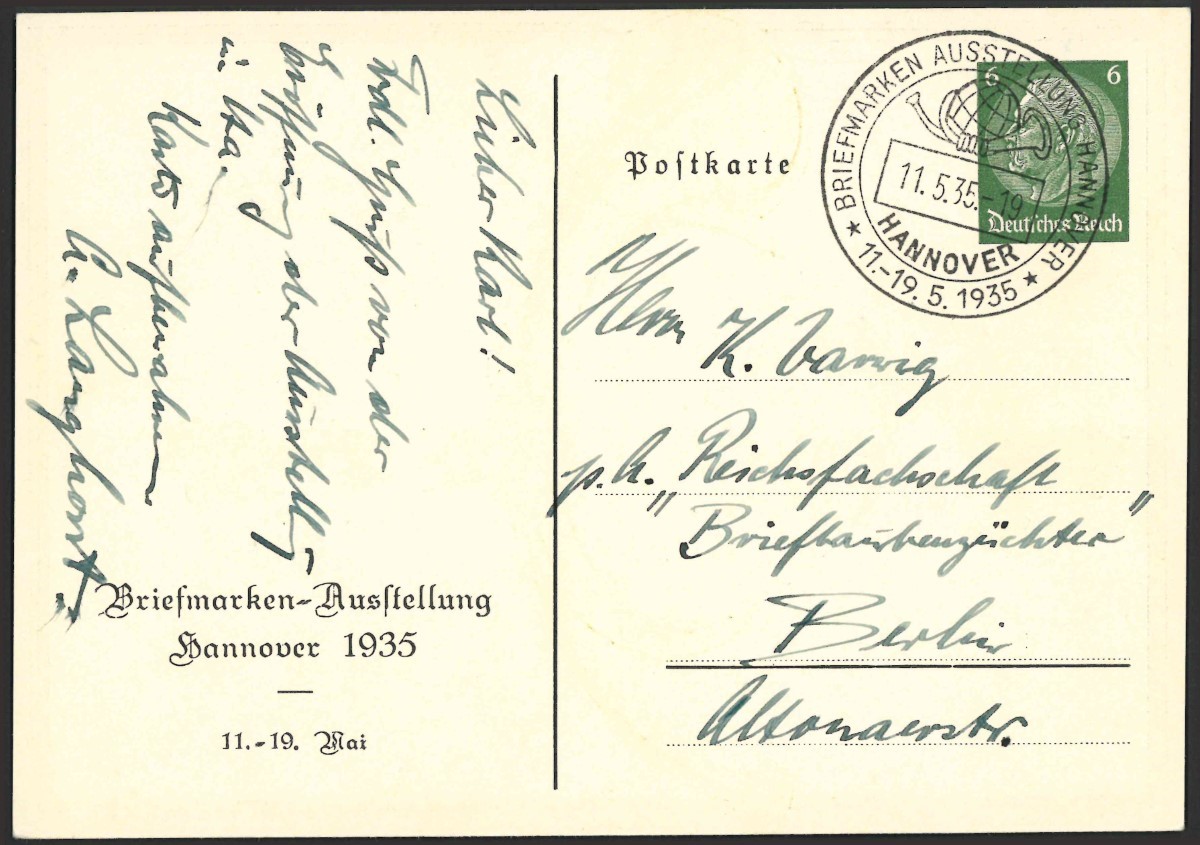 Lieber Karl!
Frdl. Gruß von der
Eröffnung der Ausstellg
in Ha.
Karte aufbewahren
Langhorst
Briefmarken-Ausstellung
Hannover 1935
11.-19. Mai
Postkarte
BRIEFMARKEN AUSSTELLUNG HANNOVER
11.5.35.-19
HANNOVER
★ 11.-19. 5. 1935 ★
6 6
Deutsches Reich
Herrn
K. Varwig
p. A. „Reichsfachschaft
Brieftaubenzüchter"
Berlin
Altonaerstr.